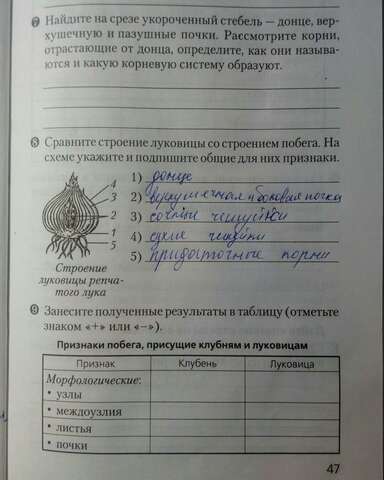 7 Найдите на срезе укороченный стебель — донце, вер-
хушечную и пазушные почки. Рассмотрите корни,
отрастающие от донца, определите, как они называ-
ются и какую корневую систему образуют.
8 Сравните строение луковицы со строением побега. На
схеме укажите и подпишите общие для них признаки.
1) донце
2) верхушечная и боковая почка
3) сочные чешуйки
4) сухие чешуйки
5) придаточные корни
4
3
2
1
5
Строение
луковицы репча-
того лука
9 Занесите полученные результаты в таблицу (отметьте
знаком «+» или «–»).
Признаки побега, присущие клубням и луковицам
Признак Клубень Луковица
Морфологические:
• узлы
• междоузлия
• листья
• почки
47